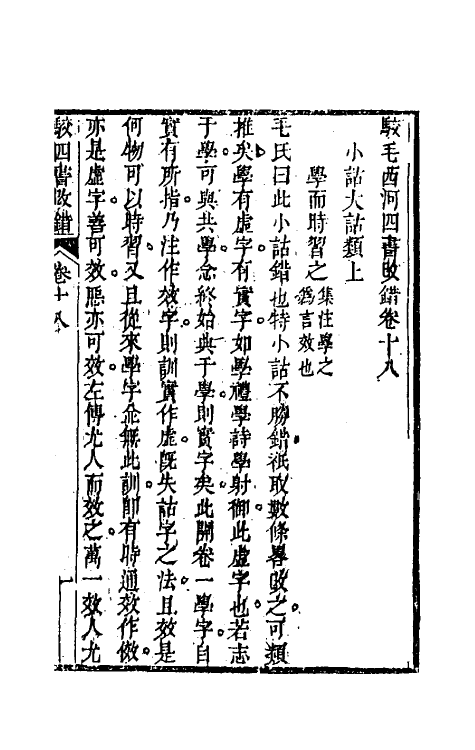 駁毛西河四書改錯卷十八
小詁大詁類上
學而時習之集注學之爲言效也
毛氏曰此小詁錯也特小詁不勝錯祇取數條畧改之可類
推矣學有虛字有實字如學禮學詩學射御此虛字也若志
于學可與共學念終始典于學則實字矣此開卷一學字自
實有所指乃注作效字則訓實作虛旣失詁字之法且效是
何物可以時習又且從來學字並無此訓卽有時通效作傚
亦是虛字善可效惡亦可效左傳尤人而效之萬一效人尤
駁四書改錯 卷十八 一